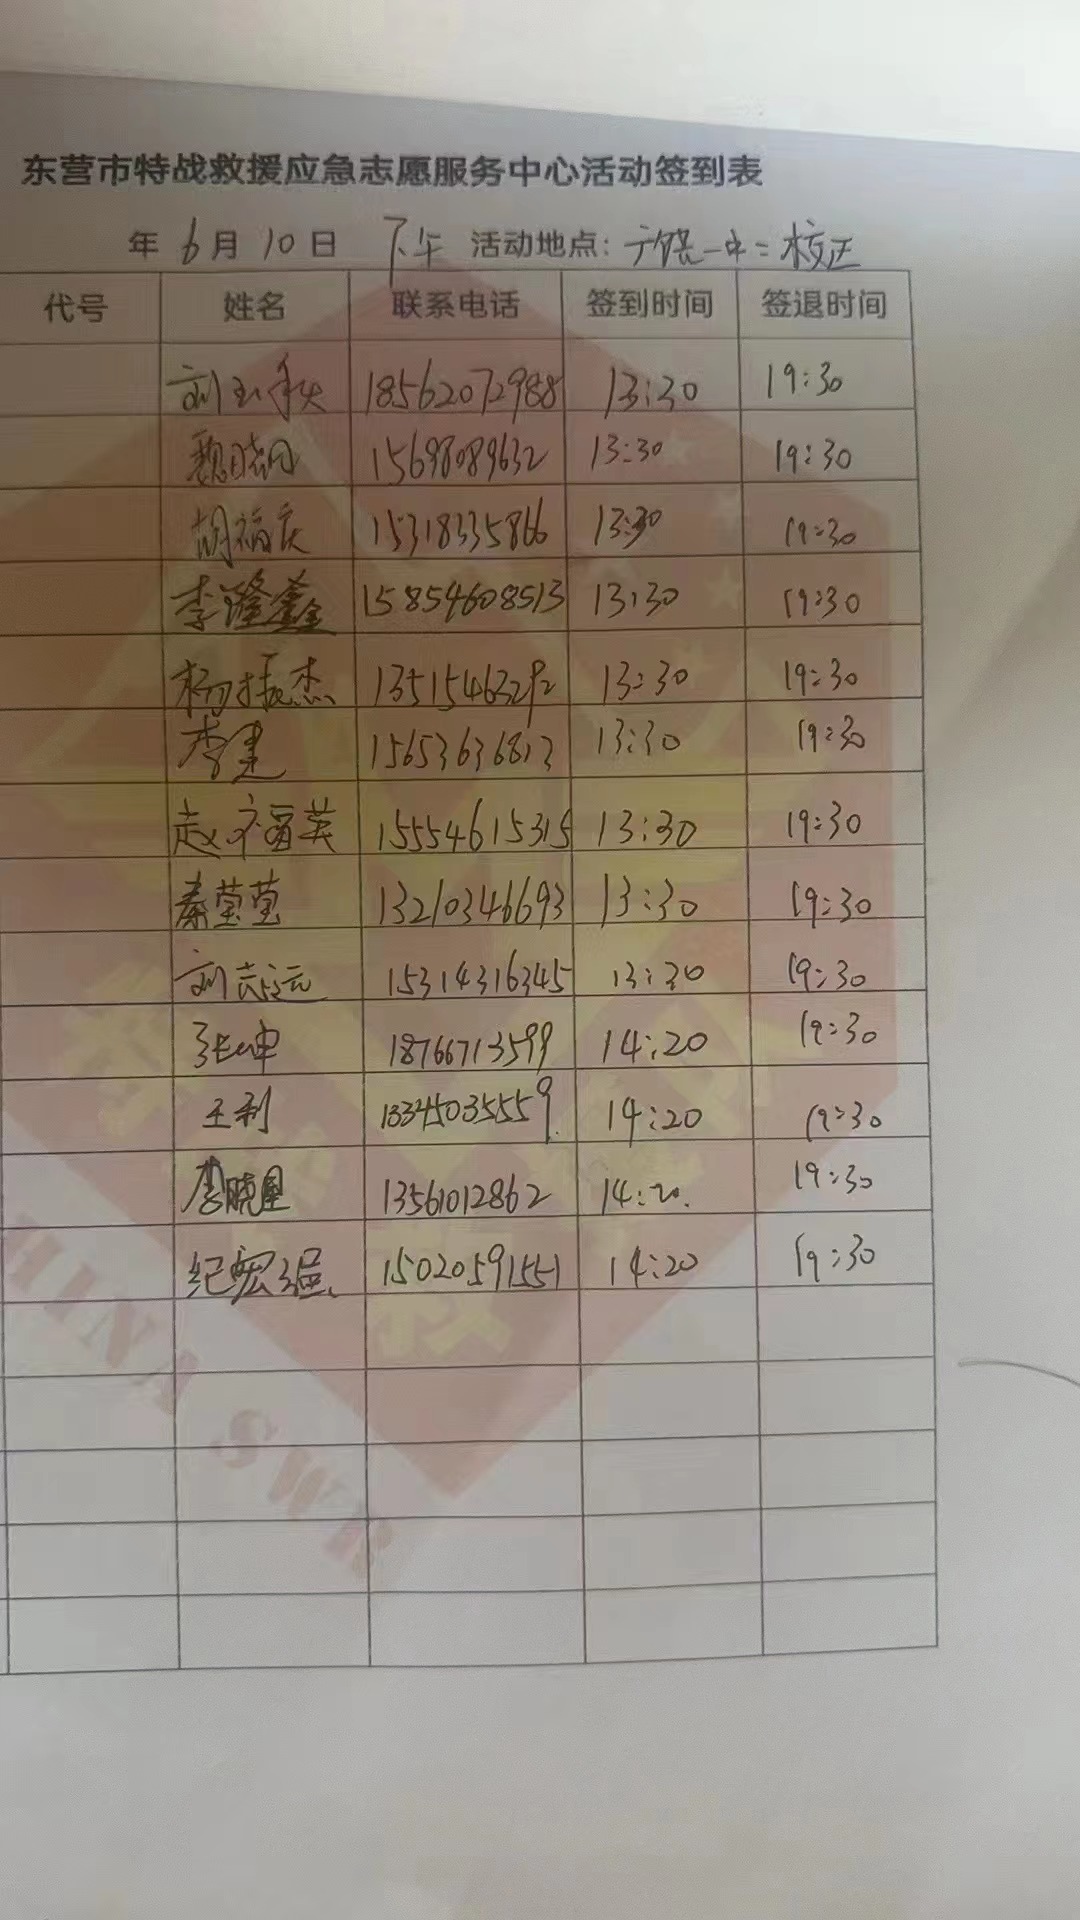 东营市特战救援应急志愿服务中心活动签到表
年 6月10日 下午 活动地点: 广饶一中二校区
代号 姓名 联系电话 签到时间 签退时间
刘玉秋 18562072988 13:30 19:30
魏晓 15698089632 13:30 19:30
胡福庆 15318335866 13:30 19:30
李隆鑫 15854608513 13:30 19:30
杨振杰 13:30 19:30
李建 15653636813 13:30 19:30
赵福英 15554615315 13:30 19:30
秦莹莹 13210346693 13:30 19:30
刘志远 15314316345 13:30 19:30
张坤 18766713599 14:20 19:30
王利 13345035559 14:20 19:30
李晓 13561012862 14:20 19:30
纪宏 15020591551 14:20 19:30
HINA SWR